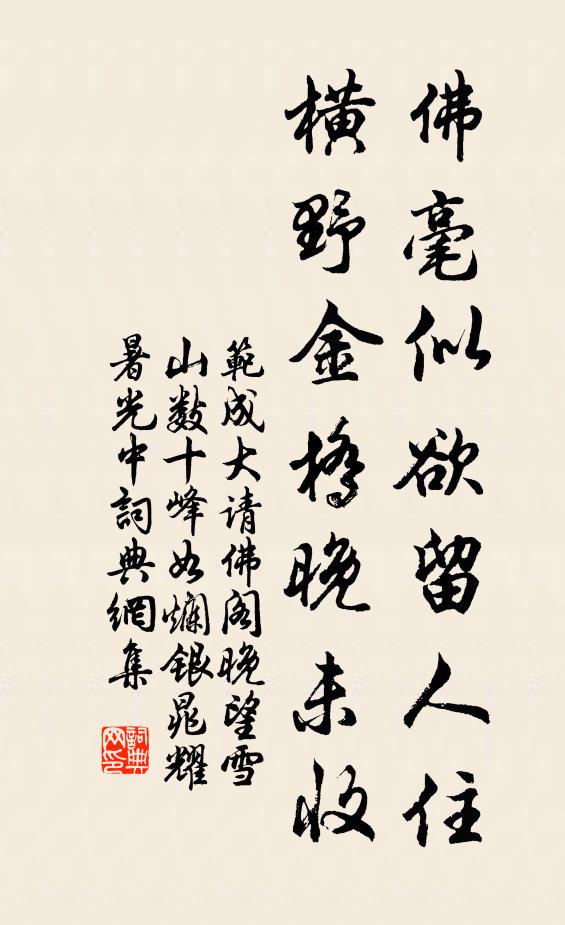 佛毫似欲留人住
橫野金橋晚未收
範成大请佛阁晚望雪
山數十峰如爛銀晃耀
暑光中詞典網集
詞典
网印